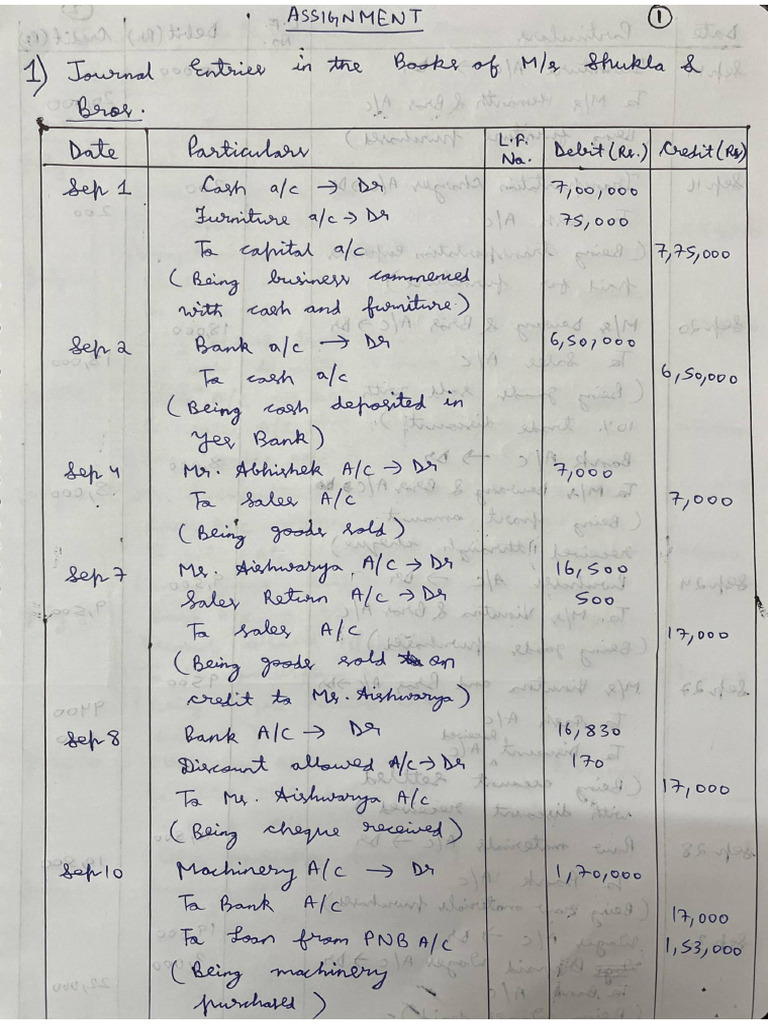 ASSIGNMENT
1
1) Journal Entries in the Books of M/s Shukla &
Bros.
Date Particulars L.F. No. Debit (Rs.) Credit (Rs)
Sep 1 Cash a/c → Dr 7,00,000
Furniture a/c → Dr 75,000
To capital a/c 7,75,000
(Being business commenced
with cash and furniture.)
Sep 2 Bank a/c → Dr 6,50,000
To cash a/c 6,50,000
(Being cash deposited in
Yes Bank)
Sep 4 Mr. Abhishek A/C → Dr 7,000
To Sales A/C 7,000
(Being goods sold)
Sep 7 Ms. Aishwarya A/C → Dr 16,500
Sales Return A/C → Dr 500
To sales A/C 17,000
(Being goods sold on
credit to Ms. Aishwarya)
Sep 8 Bank A/C → Dr 16,830
Discount allowed A/C → Dr 170
To Ms. Aishwarya A/C 17,000
(Being cheque received)
Sep 10 Machinery A/C → Dr 1,70,000
To Bank A/C 17,000
To Loan from PNB A/C 1,53,000
(Being machinery
purchased)